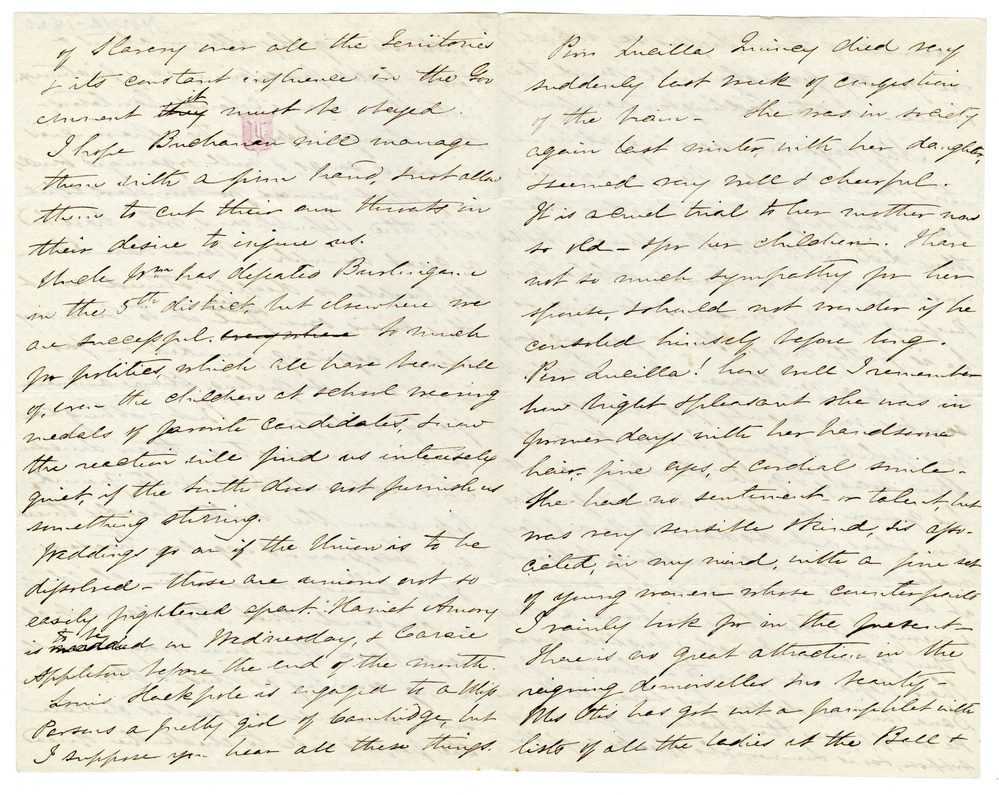 of Slavery over all the Territories
& its constant influence in the Gov
ernment they it must be obeyed.
I hope Buchanan will manage
them with a firm hand, & not allow
them to cut their own throats in
their desire to injure us.
Uncle Wm has defeated Burlingame
in the 5th district, but elsewhere we
are successful. everywhere So much
for politics, which all have been full
of, even the children at school wearing
medals of favorite candidates, & now
the reaction will find us intensely
quiet, if the South does not furnish us
something stirring.
Weddings go on if the Union is to be
dissolved – those are unions not so
easily frightened apart. Harriet Amory
is to be married on Wednesday, & Carrie
Appleton before the end of the month.
Louis Stackpole is engaged to a Miss
Parsons a pretty girl of Cambridge, but
I suppose you hear all these things.
Poor Lucilla Quincy died very
suddenly last week of congestion
of the brain – She was in society
again last winter, with her daughter,
& seemed very well & cheerful.
It is a cruel trial to her mother now
so old – & for her children. I have
not so much sympathy for her
spouse, & should not wonder if he
consoled himself before long.
Poor Lucilla! how well I remember
how bright & pleasant she was in
former days with her handsome
hair, fine eyes, & cordial smile –
She had no sentiment or talent, but
was very sensible & kind, & is asso-
ciated, in my mind, with a fine set
of young women whose counterparts
I vainly look for in the present
There is no great attraction in the
reigning demoiselles no beauty –
Mrs Otis has got out a pamphlet with
lists of all the ladies at the Ball &